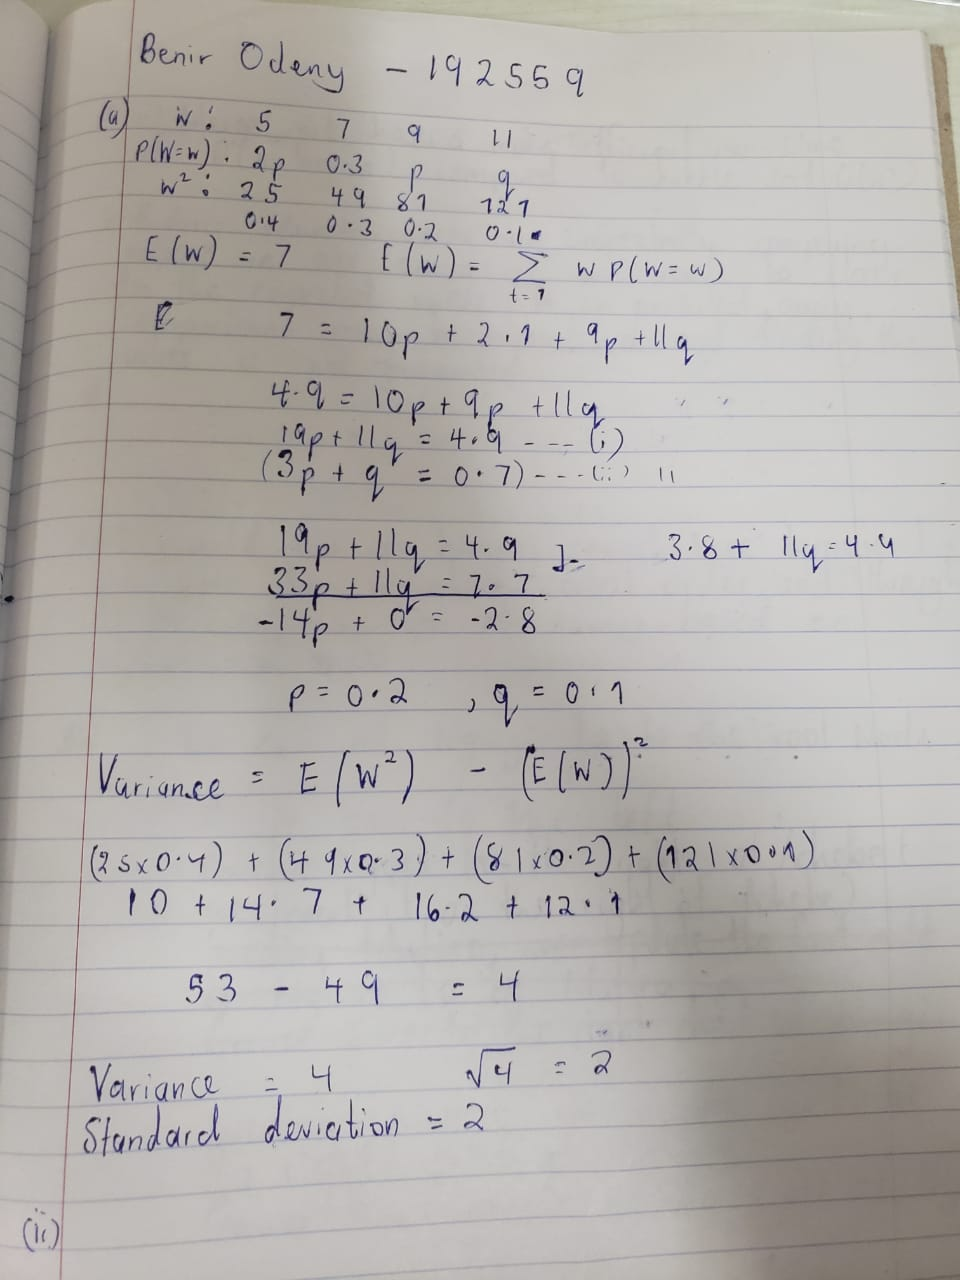 Benir Odeny - 192559
(a) W: 5 7 9 11
P(W=w): 2p 0.3 p q
W²: 25 49 81 121
0.4 0.3 0.2 0.1
E(W) = 7 E(W) = Σ W P(W=w)
t=1
E 7 = 10p + 2.1 + 9p + 11q
4.9 = 10p + 9p + 11q
19p + 11q = 4.9 --- (i)
(3p + q = 0.7) --- (ii) 11
19p + 11q = 4.9 ]- 3.8 + 11q = 4.9
33p + 11q = 7.7
-14p + 0 = -2.8
p = 0.2 , q = 0.1
Variance = E(W²) - (E(W))²
(25x0.4) + (49x0.3) + (81x0.2) + (121x0.1)
10 + 14.7 + 16.2 + 12.1
53 - 49 = 4
Variance = 4 √4 = 2
Standard deviation = 2
(ii)